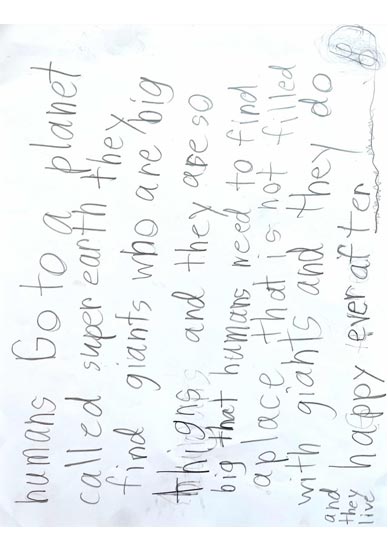 humans Go to a planet
called super earth they
find giants who are big
thigns and they are so
big that humans need to find
aplace that is not filled
with giants and they do
and they live happy ever after